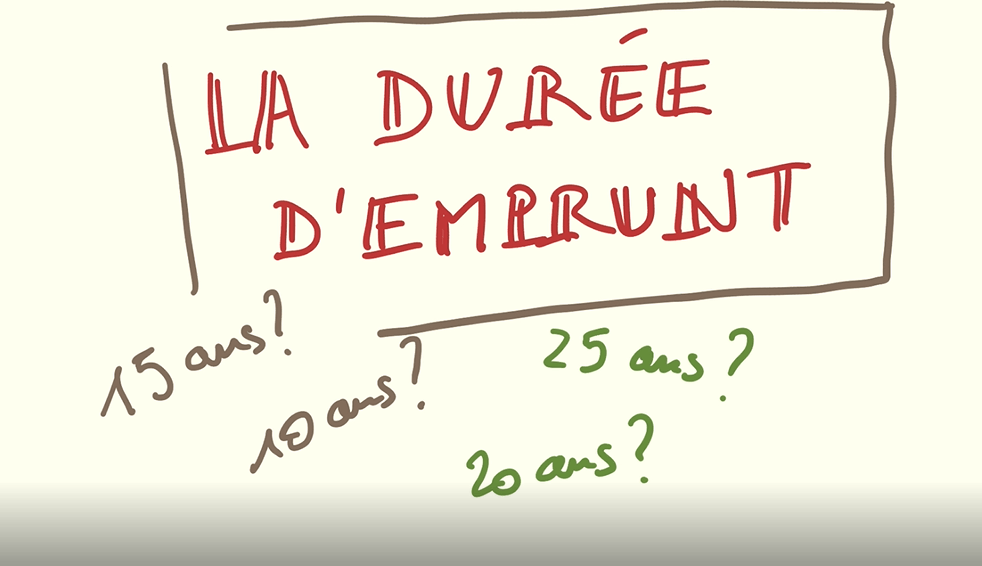 LA DURÉE
D'EMPRUNT
15 ans?
10 ans?
25 ans?
20 ans?